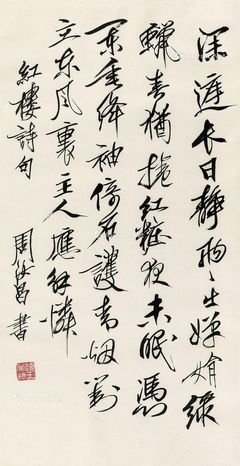 深庭长日静兩々出嬋娟绿
蠟春猶捲紅粧夜未眠馮
阑垂絳袖倚石護青烟對
立东風裏主人應解憐
紅樓詩句
周汝昌書